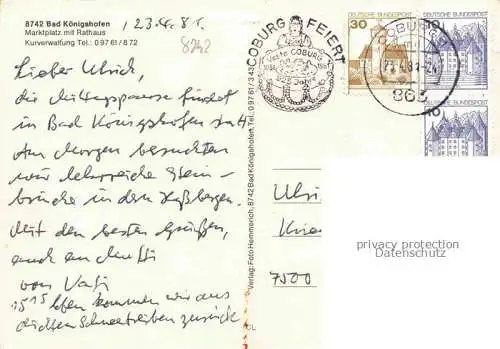 8742 Bad Königshofen
Marktplatz mit Rathaus
Kurverwaltung Tel.: 0 97 61 / 8 72
, 23.4.81.
8742
Lieber Ulrich,
die Mittagspause findet
in Bad Königshofen statt
Am Morgen besuchten
wir lehrreiche Stein-
brüche in den Haßbergen.
Mit den besten Grüßen,
auch an Mutti
von Vati
15 15 eben kommen wir aus
dichten Schneetreiben zurück
Verlag: Foto Hemmerich, 8742 Bad Königshofen, Tel.: 0 97 61/343
COBURG FEIERT
Veste COBURG
30
DEUTSCHE BUNDESPOST
DEUTSCHE BUNDESPOST
DEUTSCHE BUNDESPOST
10
COBURG
863
Ulri
7500
privacy protection
Datenschutz